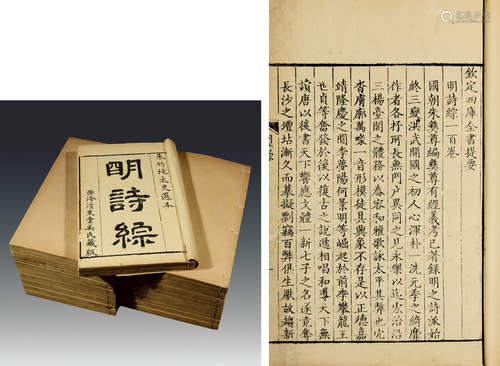 朱竹垞太史選本
明詩綜
西泠清來堂吳氏藏版
欽定四庫全書提要
明詩綜一百卷
國朝朱彝尊編彝尊有經義考已著錄明之詩派始
終三變洪武開國之初人心渾朴一洗元季之綺靡
作者各抒所長無門戶異同之見永樂以迄宏治沿
三楊臺閣之體務以舂容和雅歌詠太平其弊也冗
沓膚廓萬喙一音形模徒具興象不存是以正德嘉
靖隆慶之間李夢陽何景明等崛起於前李攀龍王
世貞等奮發於後以復古之說遞相唱和導天下無
讀唐以後書天下響應文體一新七子之名遂竟奪
長沙之壇坫漸久而摹擬剽竊百弊俱生厭故趨新